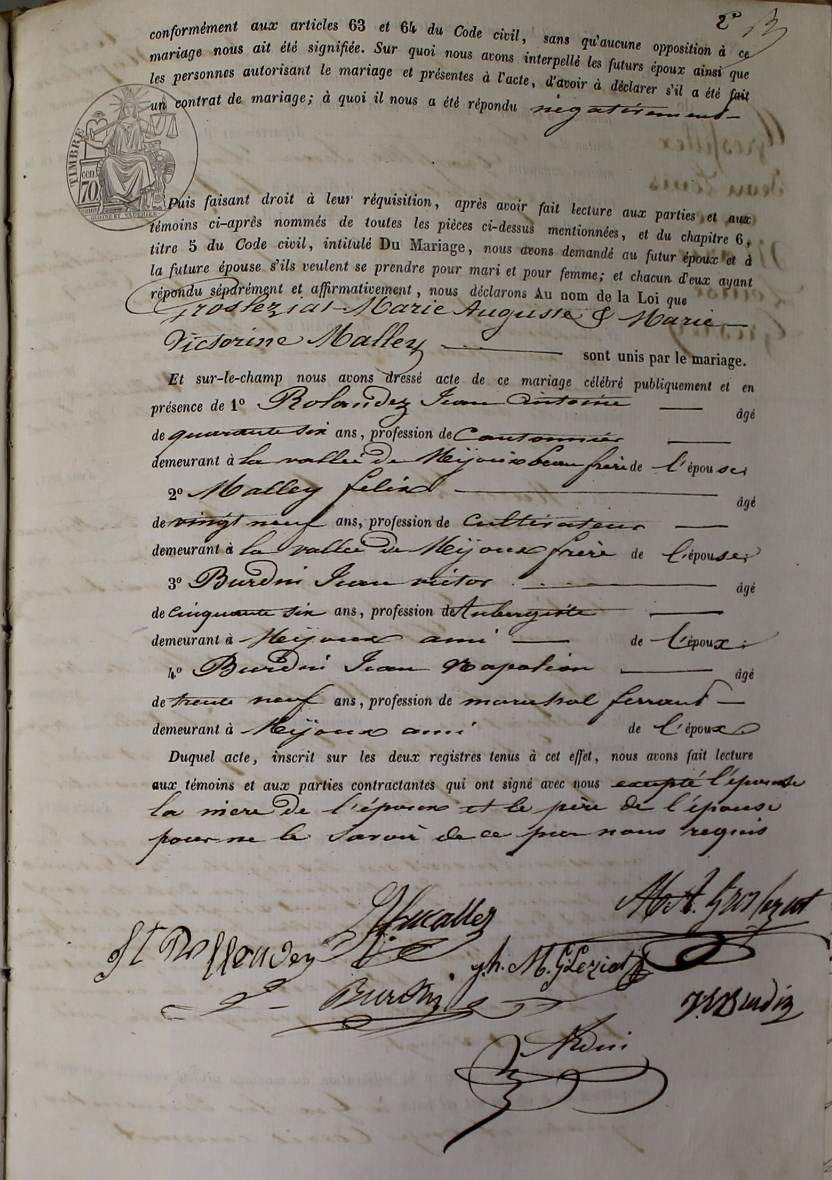 2º 13
conformément aux articles 63 et 64 du Code civil, sans qu'aucune opposition à ce
mariage nous ait été signifiée. Sur quoi nous avons interpellé les futurs époux ainsi que
les personnes autorisant le mariage et présentes à l'acte, d'avoir à déclarer s'il a été fait
un contrat de mariage; à quoi il nous a été répondu négativement
TIMBRE
70 cen
Puis faisant droit à leur réquisition, après avoir fait lecture aux parties et aux
témoins ci-après nommés de toutes les pièces ci-dessus mentionnées, et du chapitre 6,
titre 5 du Code civil, intitulé Du Mariage, nous avons demandé au futur époux et à
la future épouse s'ils veulent se prendre pour mari et pour femme; et chacun d'eux ayant
répondu séparément et affirmativement, nous déclarons Au nom de la Loi que
Grosleziat Marie Auguste & Marie
Victorine Malley sont unis par le mariage.
Et sur-le-champ nous avons dressé acte de ce mariage célébré publiquement et en
présence de 1º Rolandez Jean Antoine âgé
de quarante six ans, profession de Cantonnier
demeurant à la vallée de Mijoux beau frère de l'épouse
2º Malley felix âgé
de vingt neuf ans, profession de cultivateur
demeurant à la vallée de Mijoux frère de l'épouse
3º Burdin Jean victor âgé
de cinquante six ans, profession de Aubergiste
demeurant à Mijoux ami de l'époux
4º Burdin Jean Napoléon âgé
de trente neuf ans, profession de maréchal ferrant
demeurant à Mijoux ami de l'époux
Duquel acte, inscrit sur les deux registres tenus à cet effet, nous avons fait lecture
aux témoins et aux parties contractantes qui ont signé avec nous excepté l'épouse
la mère de l'époux et le père de l'épouse
pour ne le savoir de ce par nous requis
Burdin